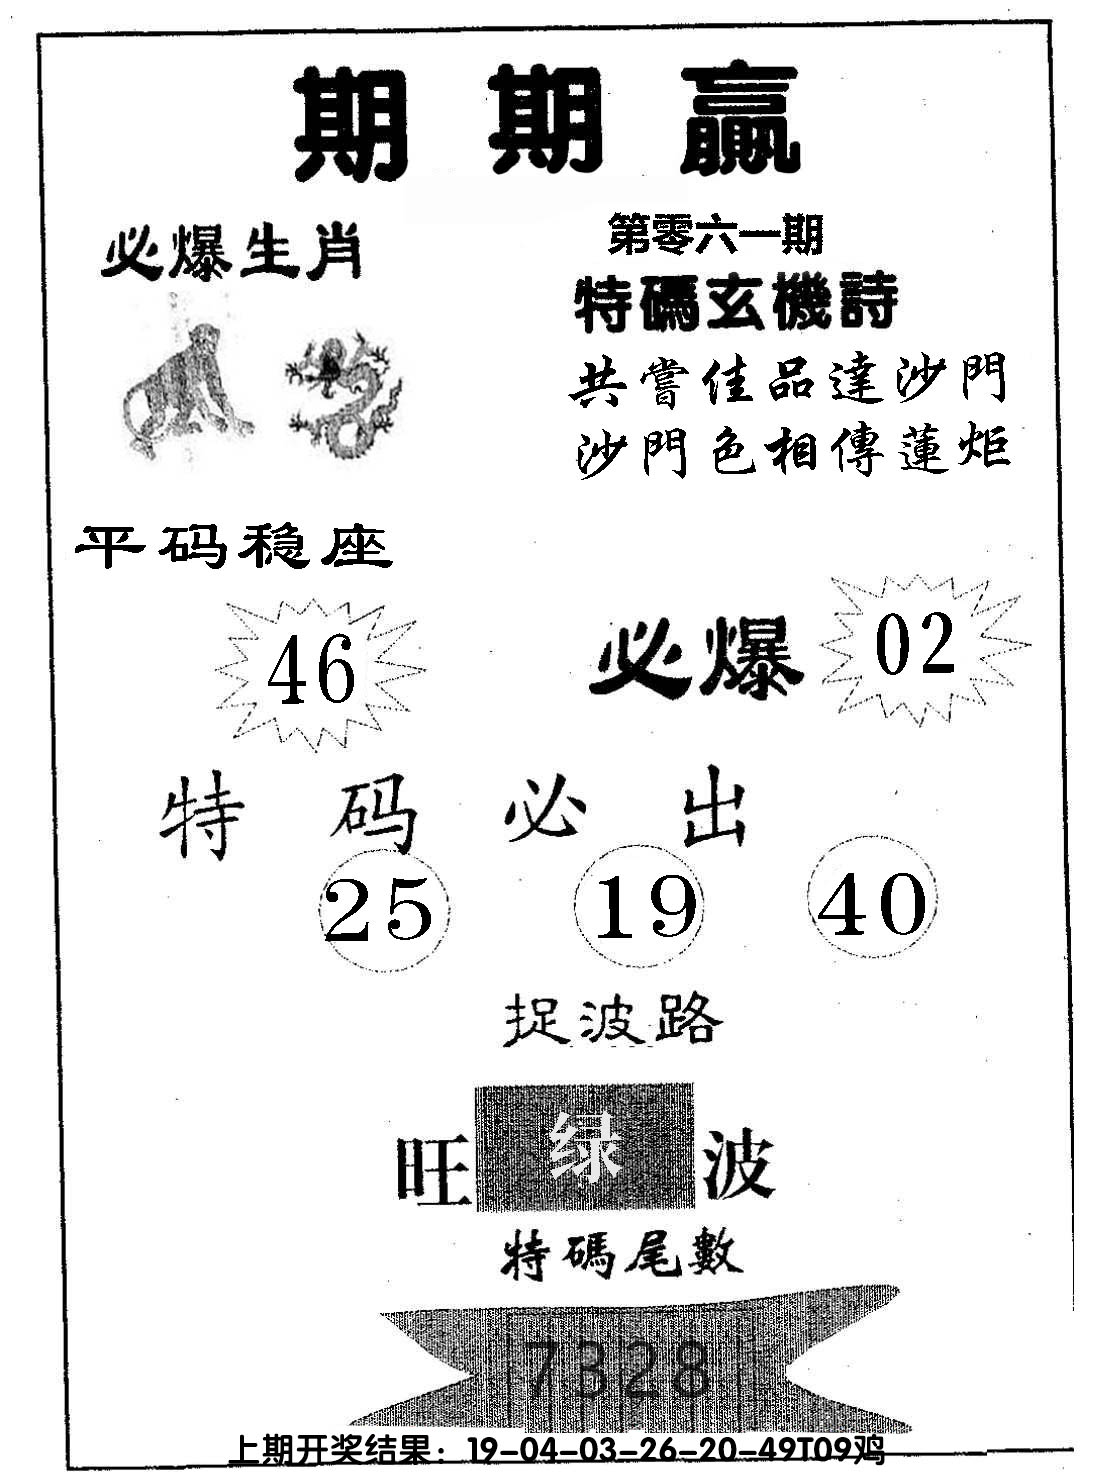 期期赢
必爆生肖
第零六一期
特碼玄機詩
共嘗佳品達沙門
沙門色相傳蓮炬
平码稳座
46
必爆 02
特码必出
25 19 40
捉波路
旺 绿 波
特碼尾數
7328
上期开奖结果：19-04-03-26-20-49T09鸡